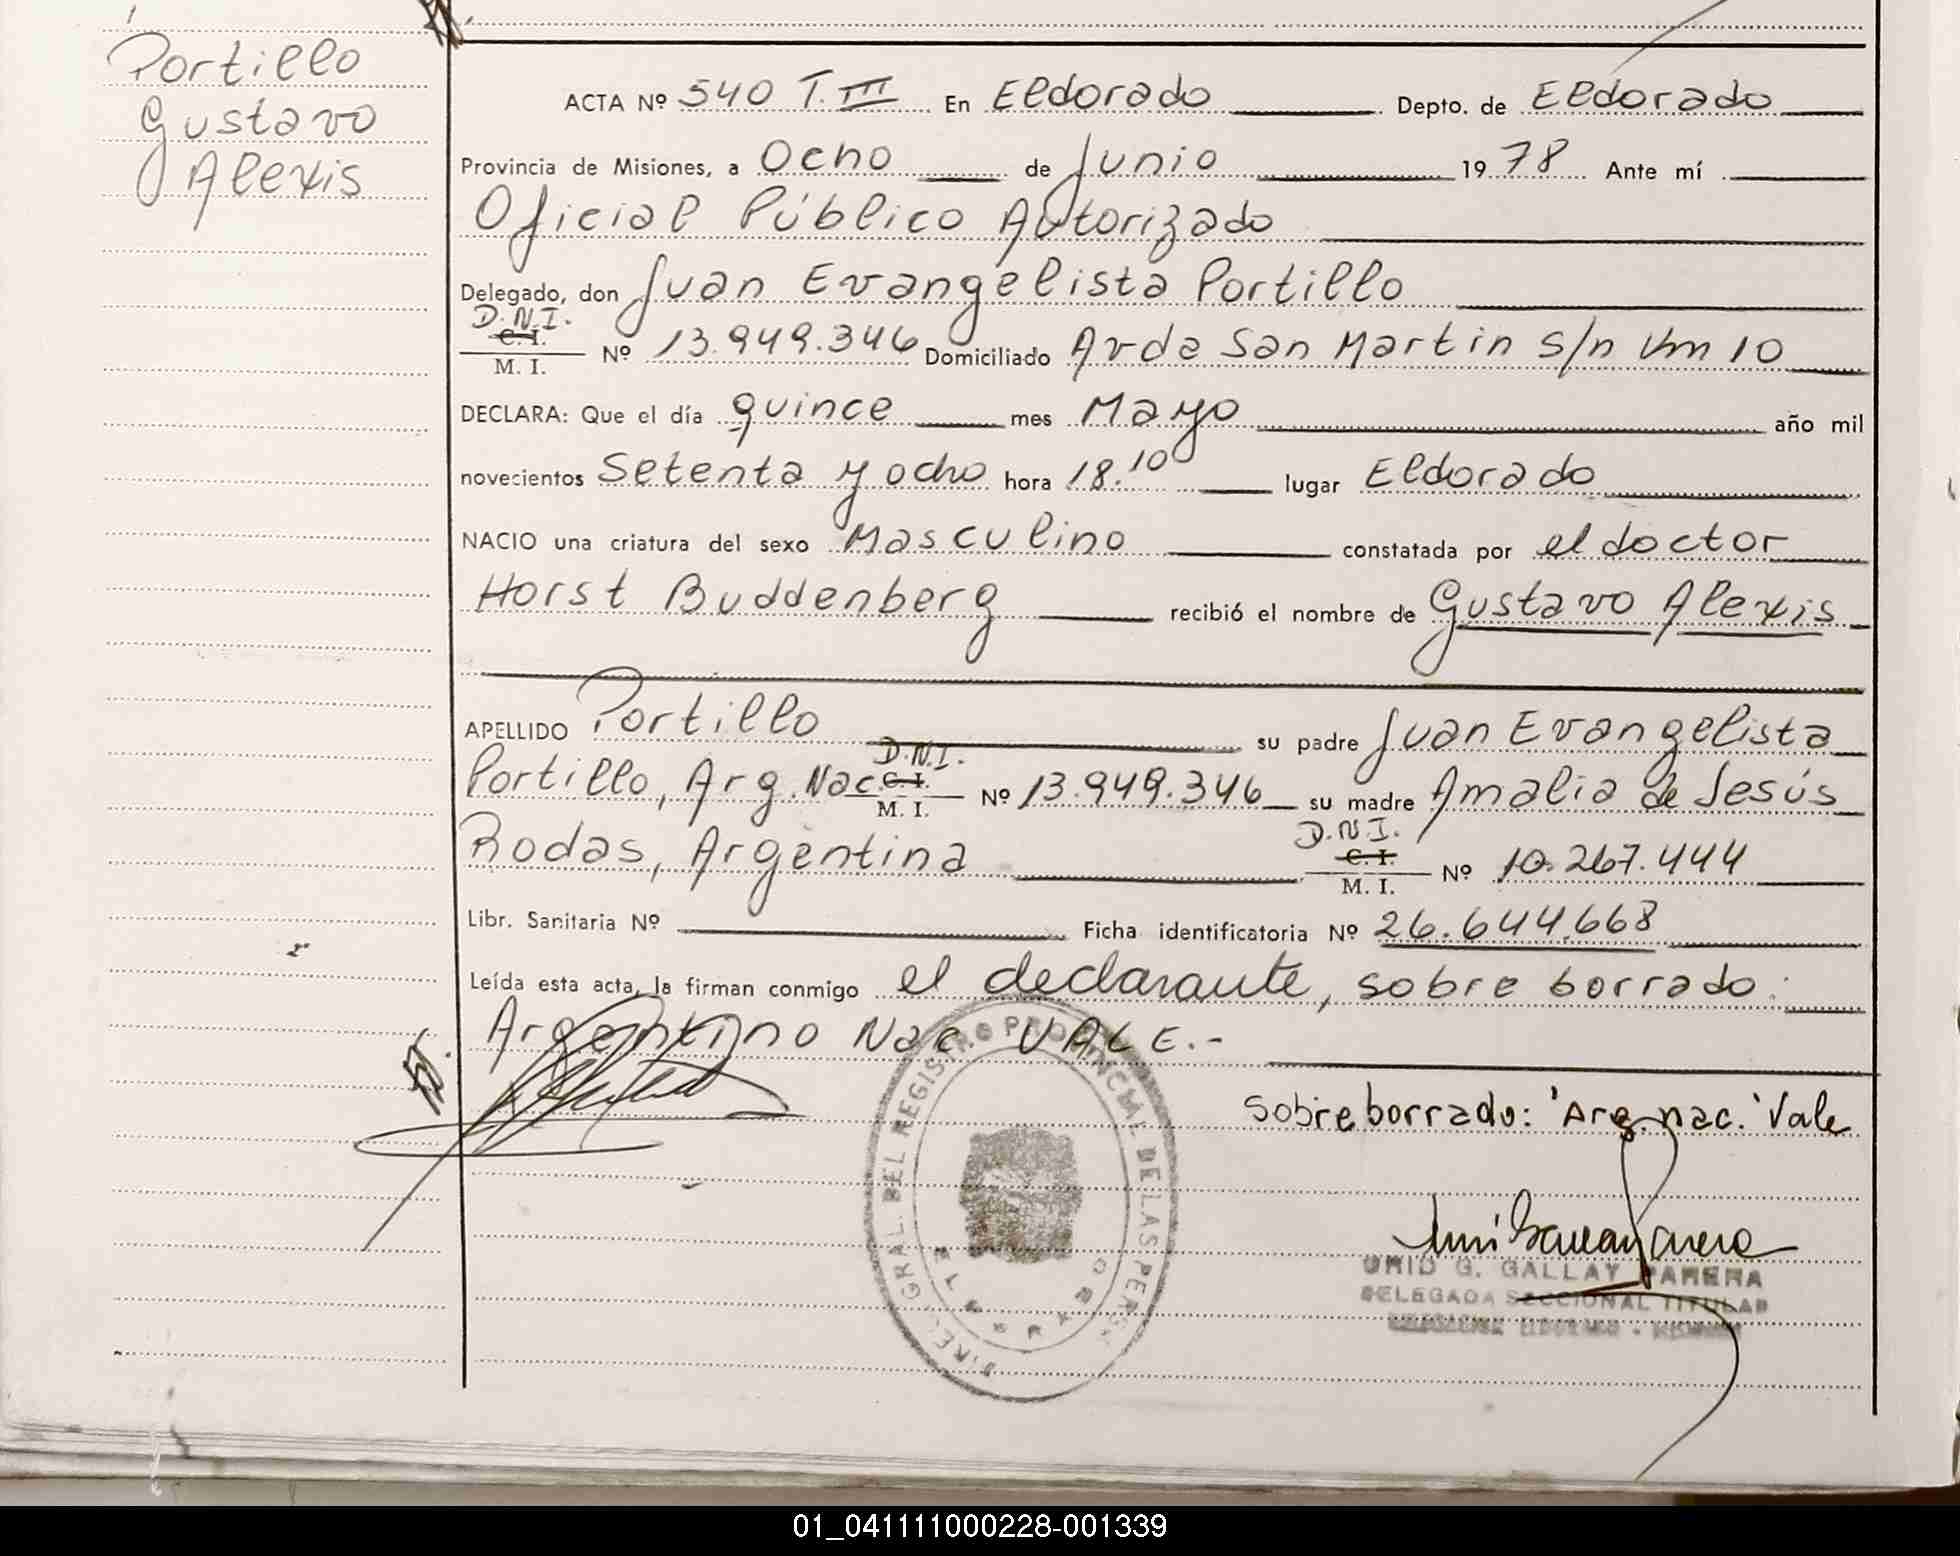 Portillo
Gustavo
Alexis
ACTA Nº 540 T. III En Eldorado Depto. de Eldorado
Provincia de Misiones, a Ocho de Junio 1978 Ante mí
Oficial Público Autorizado
Delegado, don Juan Evangelista Portillo
D.N.I.
C. I.
M. I. Nº 13.949.346 Domiciliado Avda San Martin s/n Km 10
DECLARA: Que el día quince mes Mayo año mil
novecientos Setenta y ocho hora 18.10 lugar Eldorado
NACIO una criatura del sexo Masculino constatada por el doctor
Horst Buddenberg recibió el nombre de Gustavo Alexis
APELLIDO Portillo su padre Juan Evangelista
D.N.I.
Portillo, Arg. Nac. C. I. M. I. Nº 13.949.346 su madre Amalia de Jesús
D.N.I.
Rodas, Argentina C. I. M. I. Nº 10.267.444
Libr. Sanitaria Nº Ficha identificatoria Nº 26.644.668
Leída esta acta, la firman conmigo el declarante, sobre borrado:
Argentino Nac VALE.-
Sobre borrado: 'Arg. nac.' Vale
DIREC. GRAL. DEL REGISTRO PROVINCIAL DE LAS PERS
G. GALLAY PARERA
DELEGADA SECCIONAL TITULAR
01_041111000228-001339